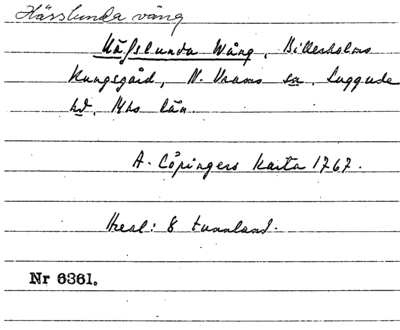 Hässlunda vång
Häſslunda Wång, Billesholms
Kungsgård, N. Vrams sn, Luggude
hd, Mhs län.
A. Cöpingers karta 1767.
Areal: 8 tunnland.
Nr 6361.